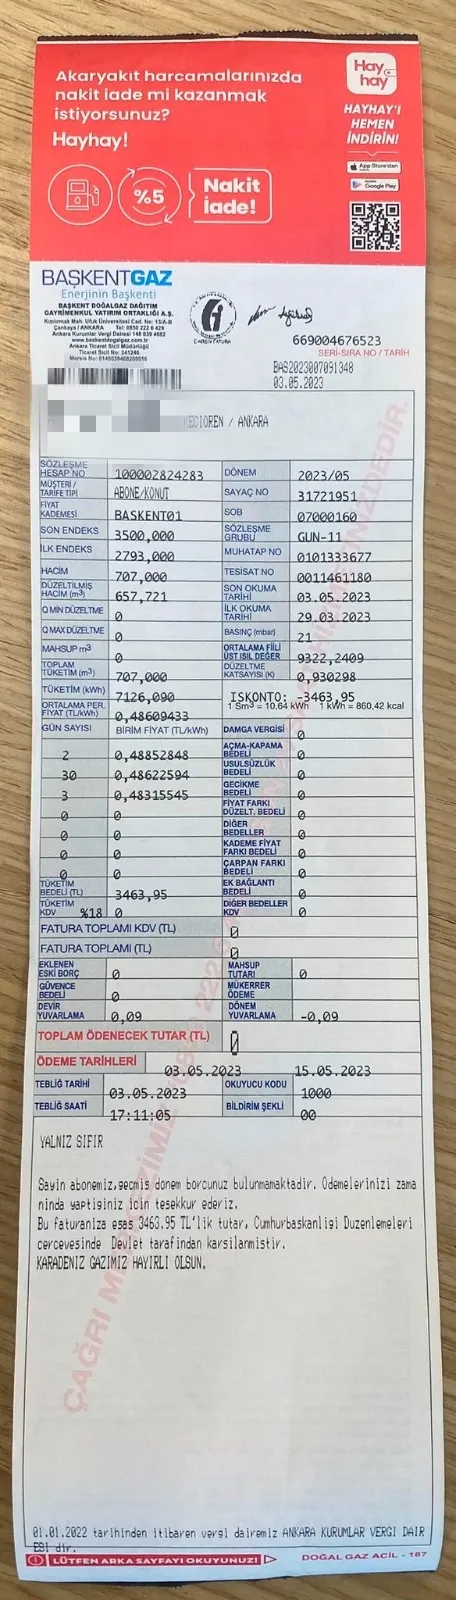 Akaryakıt harcamalarınızda
nakit iade mi kazanmak
istiyorsunuz?
Hayhay!
%5
Nakit
İade!
Hay
hay
HAYHAY'I
HEMEN
İNDİRİN!
App Store'dan
Google Play
BAŞKENTGAZ
Enerjinin Başkenti
BAŞKENT DOĞALGAZ DAĞITIM
GAYRİMENKUL YATIRIM ORTAKLIĞI A.Ş.
Kızılırmak Mah. Ufuk Üniversitesi Cad. No: 13/A-B
Çankaya / ANKARA Tel: 0850 222 6 429
Ankara Kurumlar Vergi Dairesi 148 039 4682
www.baskentdogalgaz.com.tr
Ankara Ticaret Sicil Müdürlüğü
Ticaret Sicil No: 241246
669004676523
SERİ-SIRA NO / TARİH
BAS2023007091348
03.05.2023
KECIOREN / ANKARA
SÖZLEŞME HESAP NO 100002824283 DÖNEM 2023/05
MÜŞTERİ / TARİFE TİPİ ABONE/KONUT SAYAÇ NO 31721951
FİYAT KADEMESİ BASKENT01 SOB 07000160
SON ENDEKS 3500,000 SÖZLEŞME GRUBU GUN-11
İLK ENDEKS 2793,000 MUHATAP NO 0101333677
HACİM 707,000 TESİSAT NO 0011461180
DÜZELTİLMİŞ HACİM (m³) 657,721 SON OKUMA TARİHİ 03.05.2023
Q MIN DÜZELTME 0 İLK OKUMA TARİHİ 29.03.2023
Q MAX DÜZELTME 0 BASINÇ (mbar) 21
MAHSUP m³ 0 ORTALAMA FİİLİ ÜST ISIL DEĞER 9322,2409
TOPLAM TÜKETİM (m³) 707,000 DÜZELTME KATSAYISI (K) 0,930298
TÜKETİM (kWh) 7126,090 ISKONTO: -3463,95
ORTALAMA PER. FİYAT (TL/kWh) 0,48609433 1 Sm³ = 10,64 kWh 1 kWh = 860,42 kcal
GÜN SAYISI BİRİM FİYAT (TL/kWh) DAMGA VERGİSİ 0
2 0,48852848 AÇMA-KAPAMA BEDELİ 0
30 0,48622594 USULSÜZLÜK BEDELİ 0
3 0,48315545 GECİKME BEDELİ 0
0 0 FİYAT FARKI DÜZELT. BEDELİ 0
0 0 DİĞER BEDELLER 0
0 0 KADEME FİYAT FARKI BEDELİ 0
0 0 ÇARPAN FARKI BEDELİ 0
TÜKETİM BEDELİ (TL) 3463,95 EK BAĞLANTI BEDELİ 0
TÜKETİM KDV %18 0 DİĞER BEDELLER KDV 0
FATURA TOPLAMI KDV (TL) 0
FATURA TOPLAMI (TL) 0
EKLENEN ESKİ BORÇ 0 MAHSUP TUTARI 0
GÜVENCE BEDELİ 0 MÜKERRER ÖDEME
DEVİR YUVARLAMA 0,09 DÖNEM YUVARLAMA -0,09
TOPLAM ÖDENECEK TUTAR (TL) 0
ÖDEME TARİHLERİ 03.05.2023 15.05.2023
TEBLİĞ TARİHİ 03.05.2023 OKUYUCU KODU 1000
TEBLİĞ SAATİ 17:11:05 BİLDİRİM ŞEKLİ 00
YALNIZ SIFIR
Sayin abonemiz,gecmis donem borcunuz bulunmamaktadir. Odemelerinizi zama
ninda yaptiginiz icin tesekkur ederiz.
Bu faturaniza esas 3463.95 TL'lik tutar, Cumhurbaskanligi Duzenlemeleri
cercevesinde Devlet tarafindan karsilanmistir.
KARADENIZ GAZIMIZ HAYIRLI OLSUN.
01.01.2022 tarihinden itibaren vergi dairemiz ANKARA KURUMLAR VERGI DAIR
ESI dir.
LÜTFEN ARKA SAYFAYI OKUYUNUZ!
DOĞAL GAZ ACİL - 187